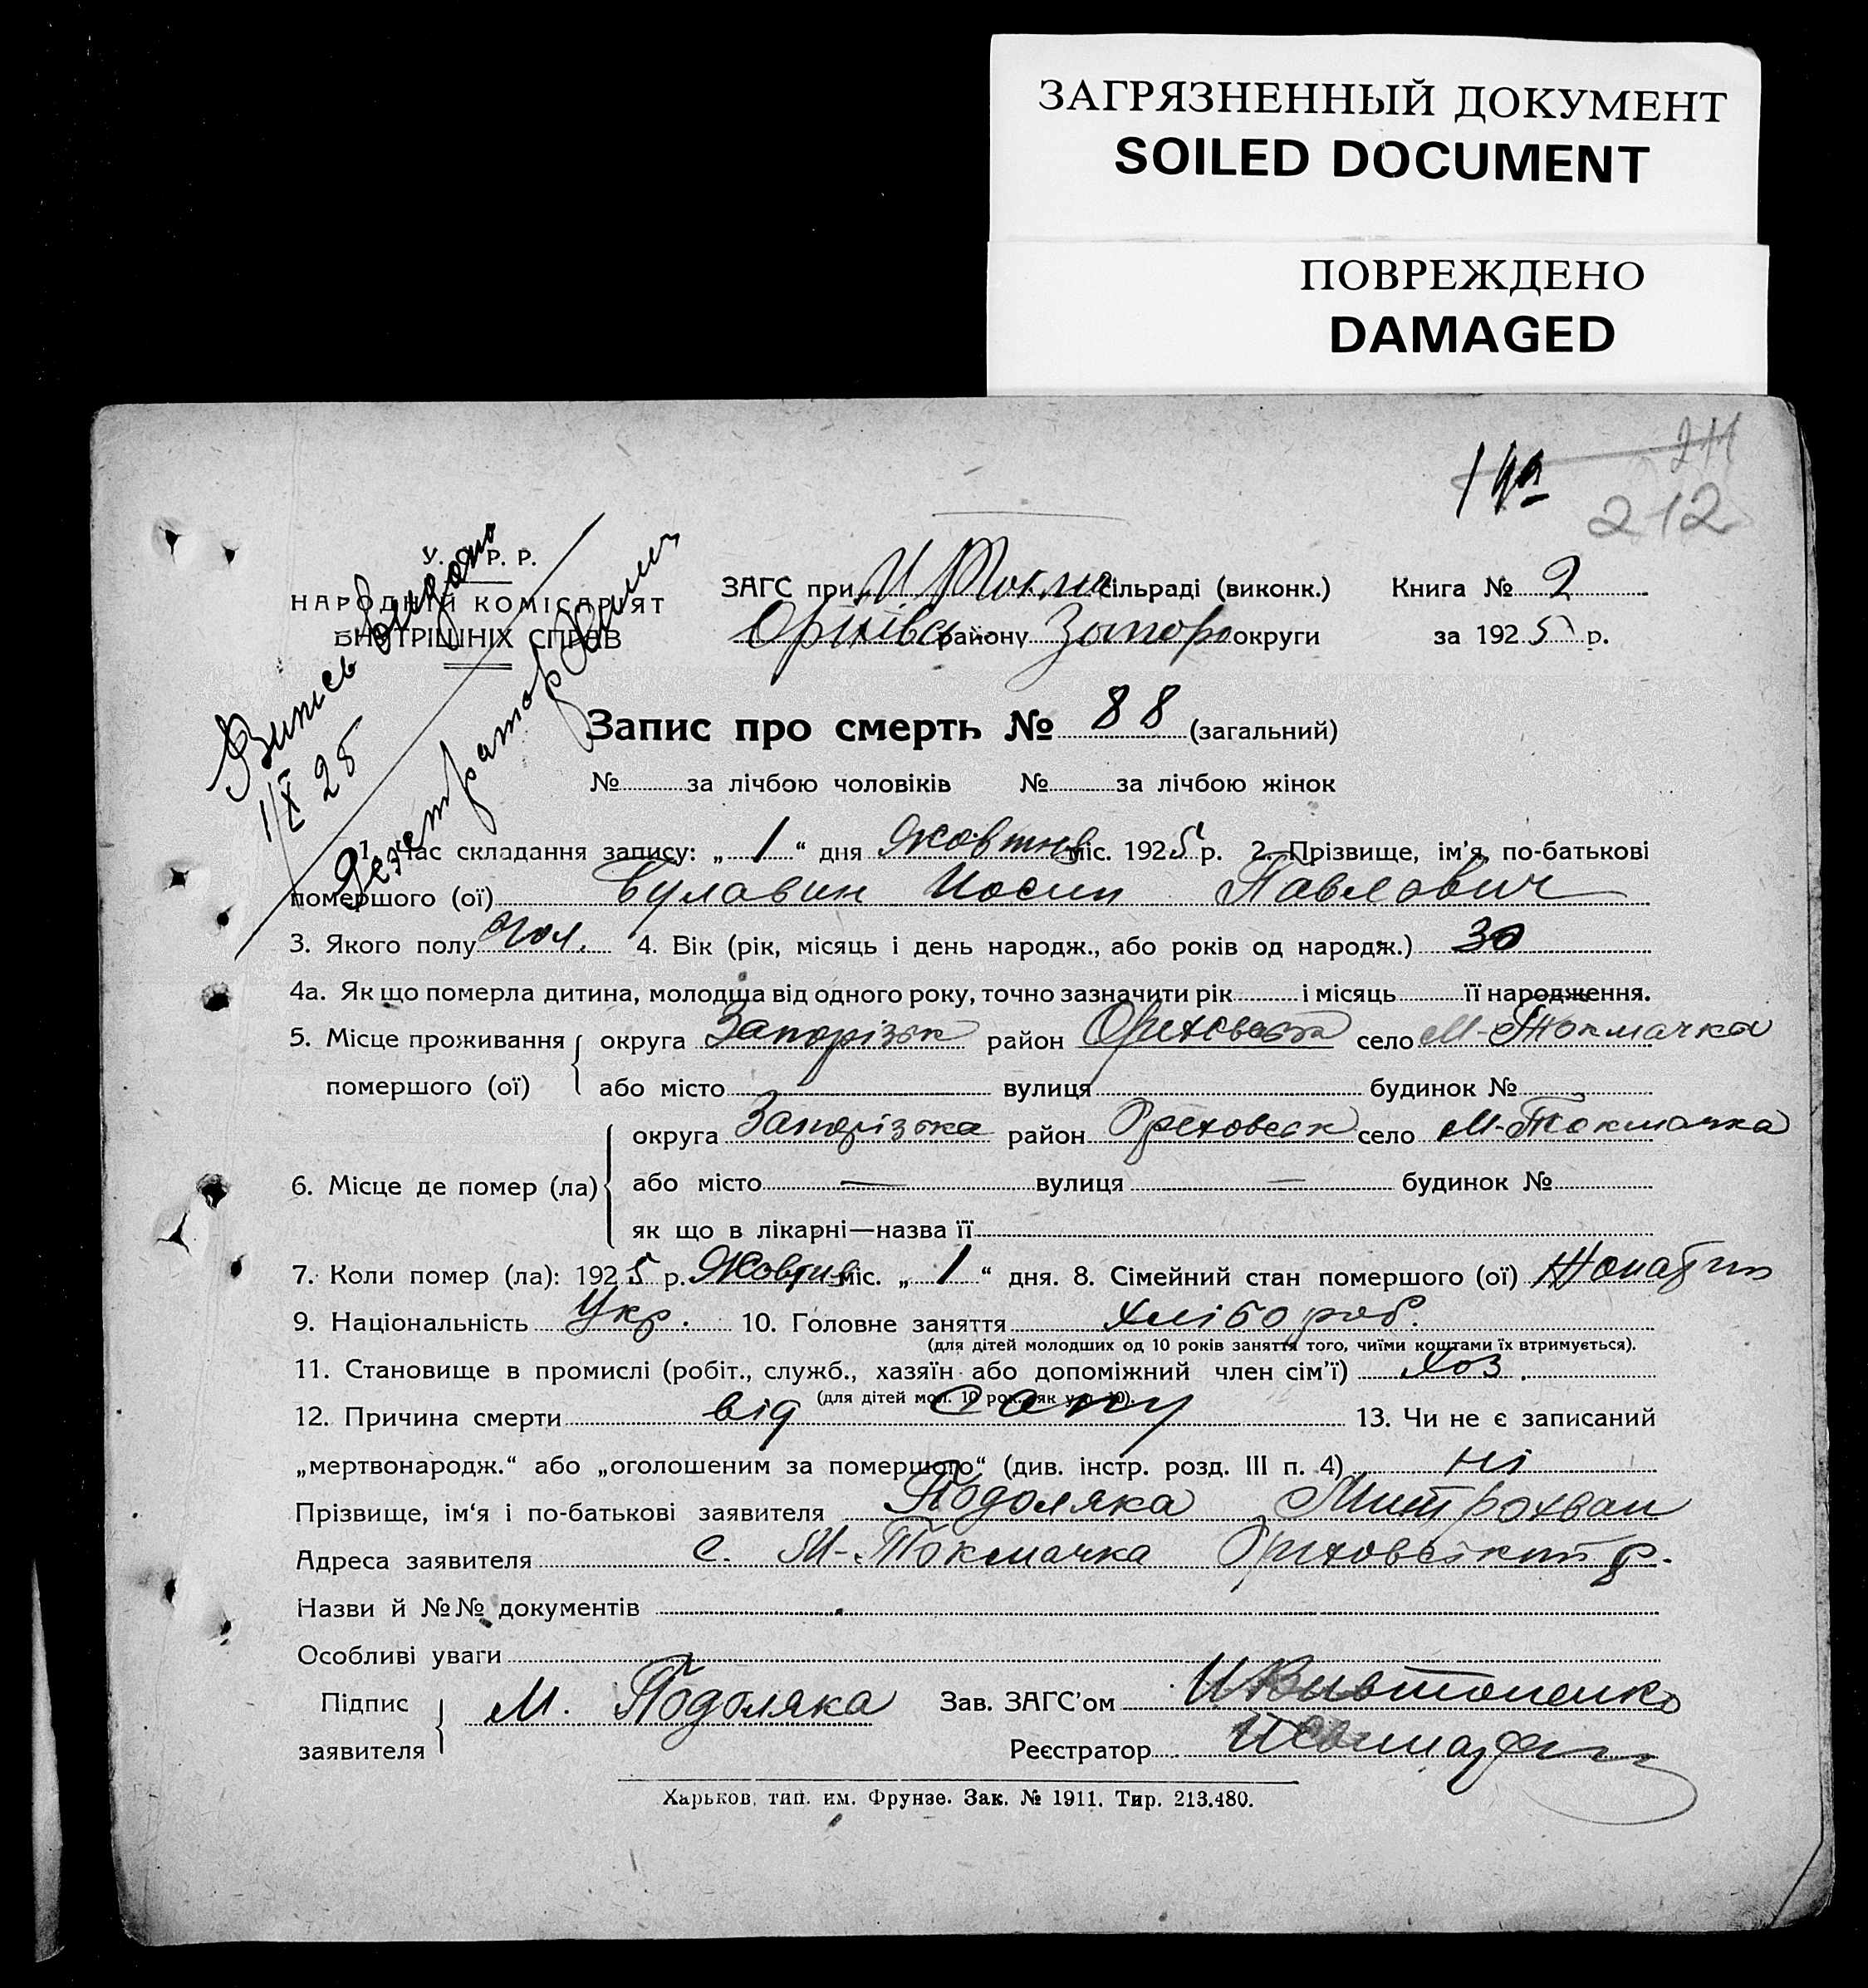 ЗАГРЯЗНЕННЫЙ ДОКУМЕНТ
SOILED DOCUMENT
ПОВРЕЖДЕНО
DAMAGED
212
У. С. Р. Р.
НАРОДНІЙ КОМІСАРІЯТ
ВНУТРІШНІХ СПРАВ
Випись видано
1/X 25
Реєстратор
ЗАГС при М Токма сільраді (виконк.) Книга № 2
Оріхівсь району Запор округи за 1925 р.
Запис про смерть № 88 (загальний)
№ за лічбою чоловіків № за лічбою жінок
1. Час складання запису: „ 1 “ дня Жовтня міс. 1925 р. 2. Прізвище, ім'я, по-батькові
помершого (ої) Булавин Иосип Павлович
3. Якого полу чол. 4. Вік (рік, місяць і день народж., або років од народж.) 30
4а. Як що померла дитина, молодша від одного року, точно зазначити рік і місяць її народження.
5. Місце проживання округа Запорізьк район Ореховська село М-Токмачка
помершого (ої) або місто вулиця будинок №
округа Запорізька район Ореховськ село М-Токмачка
6. Місце де помер (ла) або місто — вулиця — будинок №
як що в лікарні—назва її
7. Коли помер (ла): 1925 р. Жовтня міс. „ 1 “ дня. 8. Сімейний стан помершого (ої) Жонатий
9. Національність Укр. 10. Головне заняття хлібороб.
(для дітей молодших од 10 років заняття того, чиїми коштами їх втримується).
11. Становище в промислі (робіт., служб., хазяїн або допоміжний член сім'ї) хоз.
(для дітей мол. 10 рок. як у п. 10).
12. Причина смерти від сапу 13. Чи не є записаний
„мертвонародж.“ або „оголошеним за помершого“ (див. інстр. розд. III п. 4) ні
Прізвище, ім'я і по-батькові заявителя Подоляка Митрохван
Адреса заявителя с. М-Токмачка Ореховський р.
Назви й №№ документів
Особливі уваги
Підпис М. Подоляка Зав. ЗАГС'ом
заявителя Реєстратор
Харьков, тип. им. Фрунзе. Зак. № 1911. Тир. 213.480.